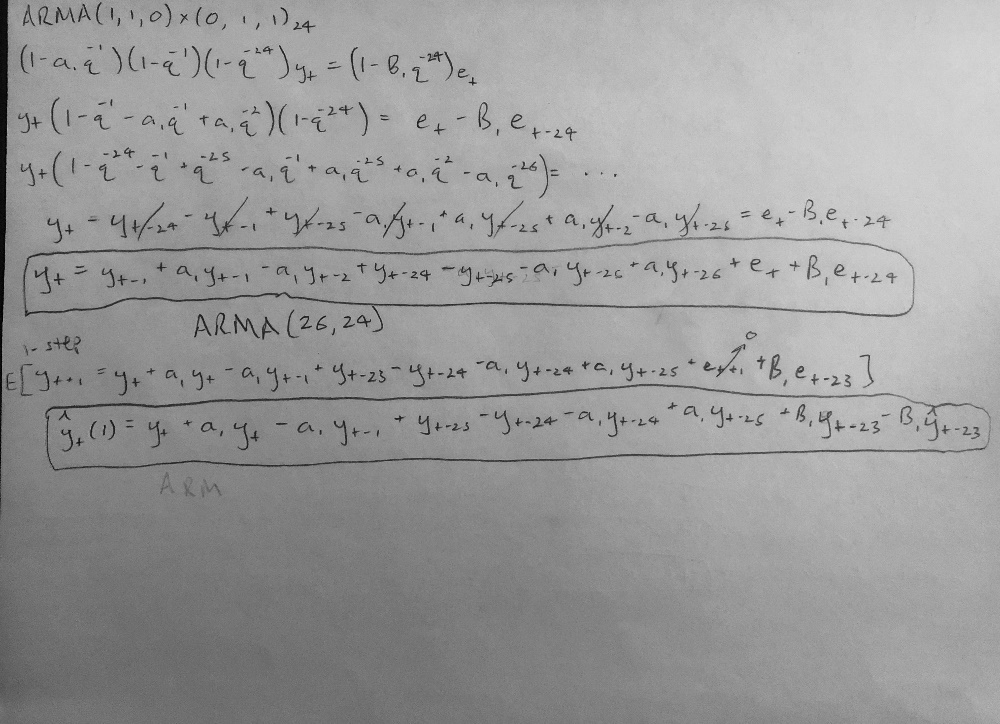 ARMA(1,1,0)×(0,1,1)₂₄
(1-a₁q⁻¹)(1-q⁻¹)(1-q⁻²⁴)yₜ = (1-B₁q⁻²⁴)eₜ
yₜ(1-q⁻¹-a₁q⁻¹+a₁q⁻²)(1-q⁻²⁴) = eₜ - B₁eₜ₋₂₄
yₜ(1-q⁻²⁴-q⁻¹+q⁻²⁵-a₁q⁻¹+a₁q⁻²⁵+a₁q⁻²-a₁q⁻²⁶) = ...
yₜ - yₜ₋₂₄ - yₜ₋₁ + yₜ₋₂₅ - a₁yₜ₋₁ + a₁yₜ₋₂₅ + a₁yₜ₋₂ - a₁yₜ₋₂₆ = eₜ - B₁eₜ₋₂₄
yₜ = yₜ₋₁ + a₁yₜ₋₁ - a₁yₜ₋₂ + yₜ₋₂₄ - yₜ₋₂₅ - a₁yₜ₋₂₅ + a₁yₜ₋₂₆ + eₜ + B₁eₜ₋₂₄
ARMA(26,24)
1-step
E[yₜ₊₁ = yₜ + a₁yₜ - a₁yₜ₋₁ + yₜ₋₂₃ - yₜ₋₂₄ - a₁yₜ₋₂₄ + a₁yₜ₋₂₅ + eₜ₊₁ 0 + B₁eₜ₋₂₃]
ŷₜ(1) = yₜ + a₁yₜ - a₁yₜ₋₁ + yₜ₋₂₃ - yₜ₋₂₄ - a₁yₜ₋₂₄ + a₁yₜ₋₂₅ + B₁yₜ₋₂₃ - B₁ŷₜ₋₂₃
ARM